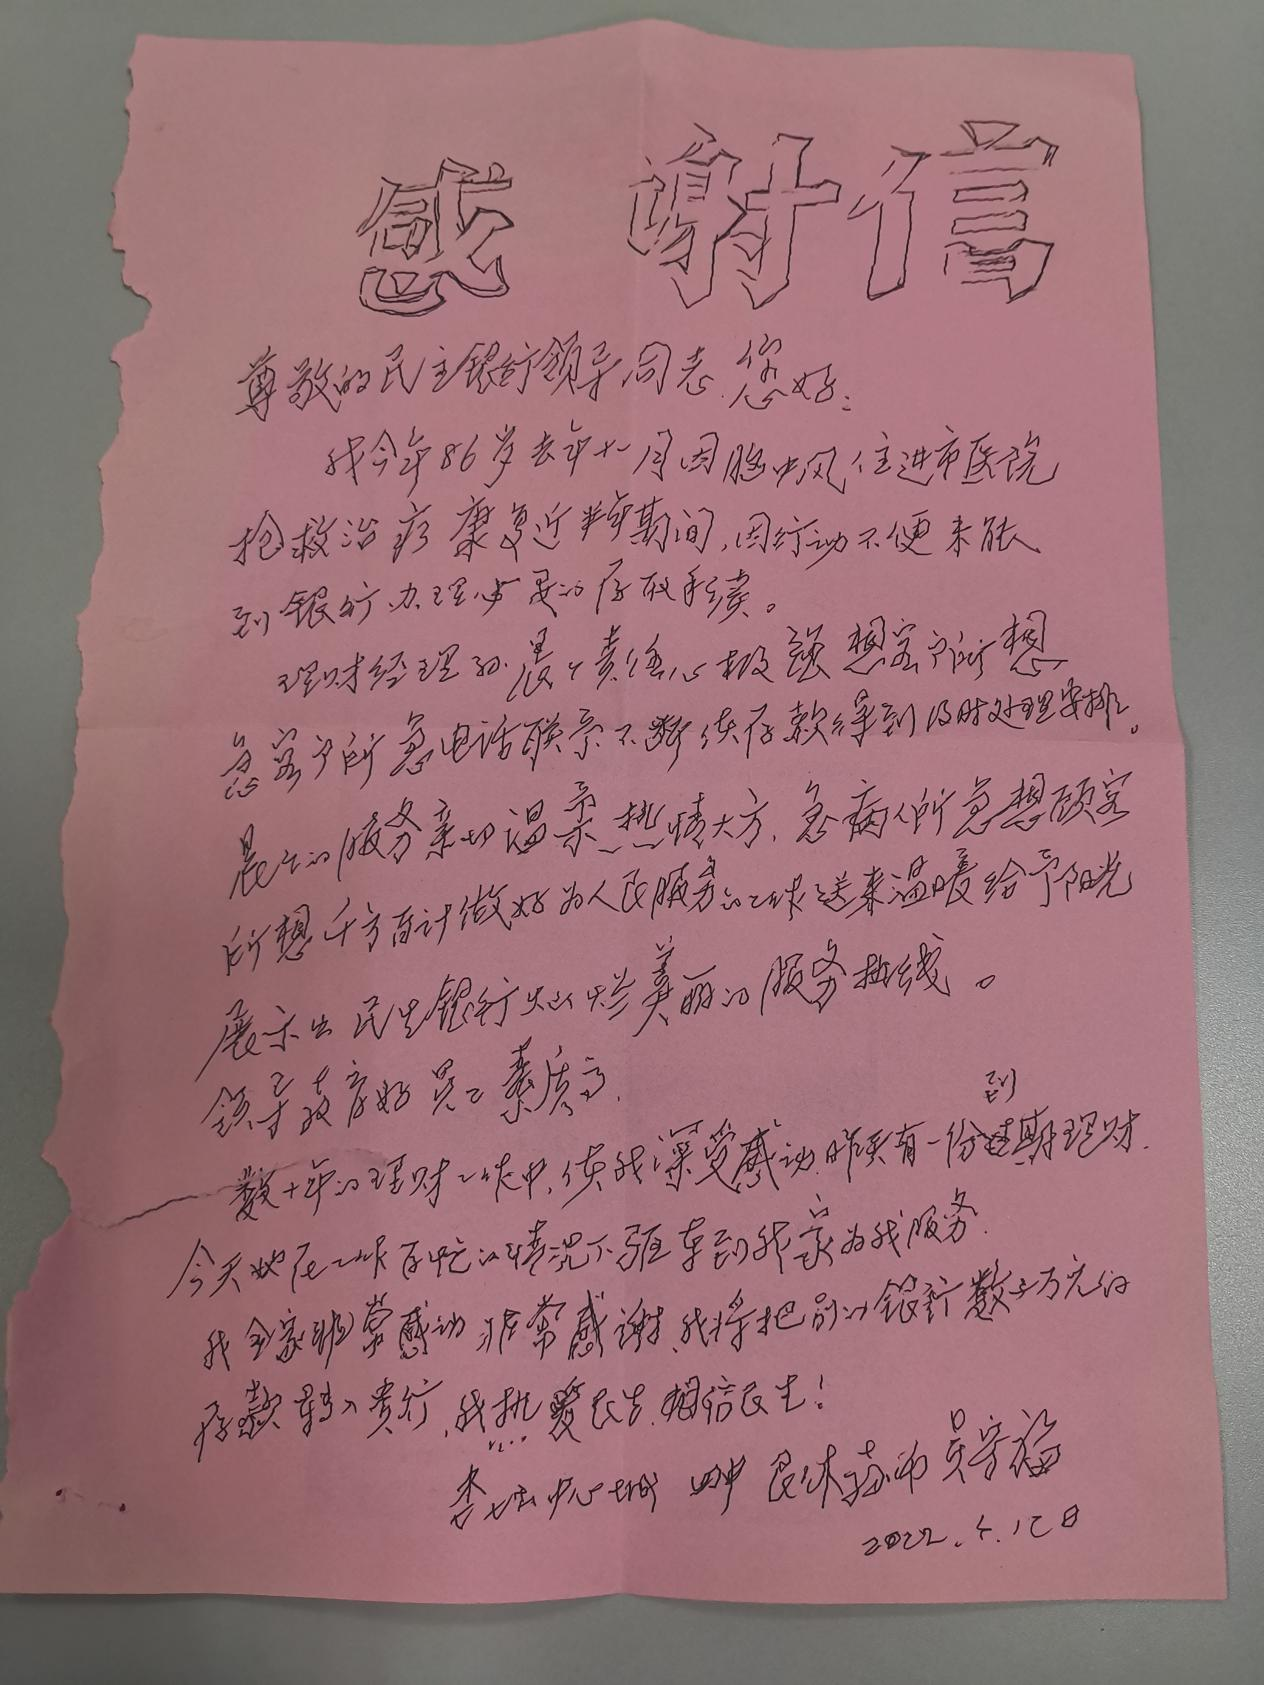 感谢信
尊敬的民生银行领导同志.您好:
我今年86岁去年十一月因脑中风住进市医院
抢救治疗康复近半年期间,因行动不便未能
到银行办理必要的存取手续。
理财经理孙晨个责任心极强想客户所想
急客户所急电话联系不断使存款得到及时处理安排。
晨个的服务亲切温柔热情大方,急病人所急想顾客
所想千方百计做好为人民服务的工作送来温暖给予阳光
展示出民生银行灿烂美丽的服务热线。
领导教育好员工素质高.
数十年的理财工作中,使我深受感动.昨天有一份到期理财.
今天她在工作百忙的情况下驱车到我家为我服务.
我全家非常感动非常感谢.我将把别的银行数十万元的
存款转入贵行,我热爱民生.相信民生!
中心城 退休教师 吴守福
2022.5.12日